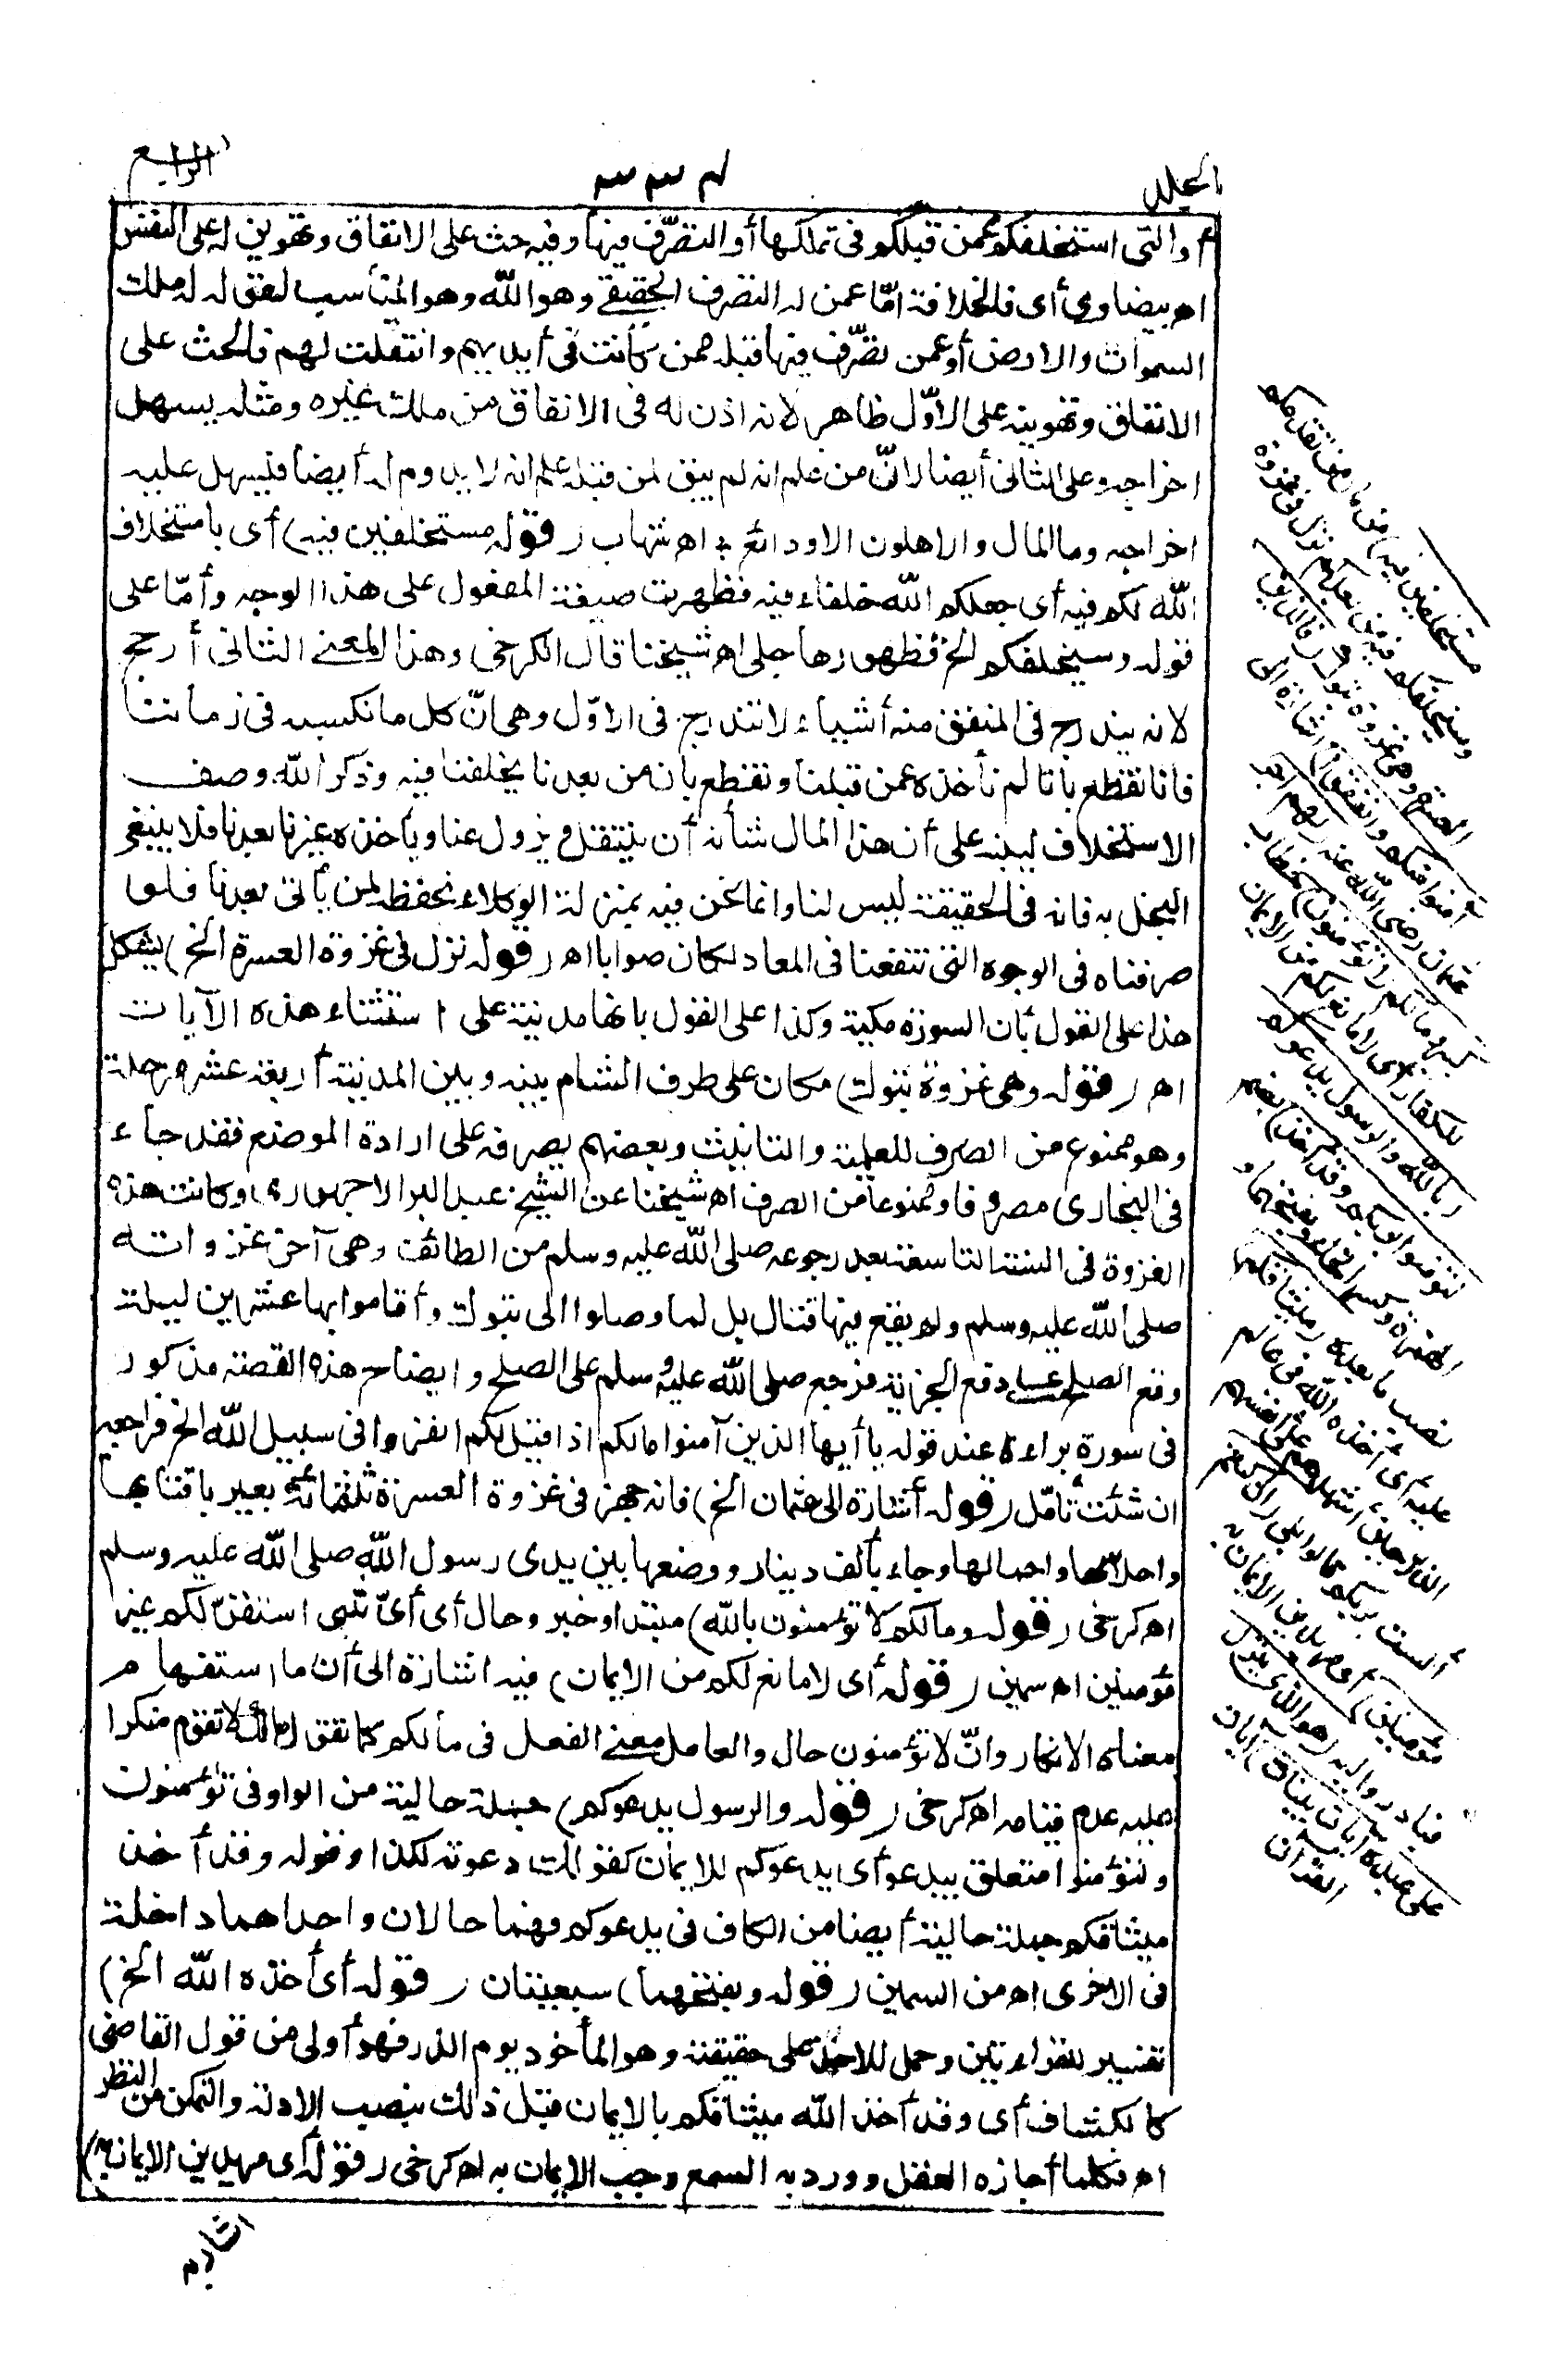 الجلد
٣٣٤
الرابع
أو التى استخلفكم عمن قبلكم فى تملكها أو التصرّف فيها وفيه حث على الانفاق وتهوين له على النفس
اه بيضاوى أى فالخلافة امّا عمن له التصرف الحقيقى وهو الله وهو المناسب لقوله له ملك
السموات والارض أو عمن تصرّف فيها قبله ممن كانت فى أيديهم وانتقلت لهم فالحث على
الانفاق وتهوينه على الأوّل ظاهر لانه اذن له فى الانفاق من ملك غيره ومثله يسهل
اخراجه وعلى الثانى أيضا لانّ من علم انه لم يبق لمن قبله علم انه لا يدوم له أيضا فيسهل عليه
اخراجه وما المال والاهلون الا ودائع * اه شهاب (قوله مستخلفين فيه) أى باستخلاف
الله لكم فيه أى جعلكم الله خلفاء فيه فظهرت صيغة المفعول على هذا الوجه وأمّا على
قوله وسيخلفكم الخ فظهورها جلى اه شيخنا قال الكرخى وهذا المعنى الثانى أرجح
لانه يندرج فى المنفق منه أشياء لا تندرج فى الاوّل وهى انّ كل ما نكسبه فى زماننا
فانا نقطع بأنا لم نأخذه عمن قبلنا ونقطع بان من بعدنا يخلفنا فيه وذكر الله وصف
الاستخلاف لينبه على أن هذا المال شأنه أن ينتقل ويزول عنا ويأخذه غيرنا بعدنا فلا ينبغى
البخل به فانه فى الحقيقة ليس لنا وانما نحن فيه بمنزلة الوكلاء نحفظه لمن يأتى بعدنا فلو
صرفناه فى الوجوه التى تنفعنا فى المعاد لكان صوابا اه (قوله نزل فى غزوة العسرة الخ) يشكل
هذا على القول بأن السورة مكية وكذا على القول بانها مدنية على استثناء هذه الآيات
اه (قوله وهى غزوة تبوك) مكان على طرف الشام بينه وبين المدينة أربعة عشر مرحلة
وهو ممنوع من الصرف للعلمية والتانيث وبعضهم يصرفه على ارادة الموضع فقد جاء
فى البخارى مصروفا وممنوعا من الصرف اه شيخنا عن الشيخ عبد البر الاجهورى وكانت هذه
الغزوة فى السنة التاسعة بعد رجوعه صلى الله عليه وسلم من الطائف وهى آخر غزواته
صلى الله عليه وسلم ولم يقع فيها قتال بل لما وصلوا الى تبوك وأقاموا بها عشرين ليلة
وقع الصلح على دفع الجزية فرجع صلى الله عليه وسلم على الصلح وايضاح هذه القصة مذكور
فى سورة براءة عند قوله يا أيها الذين آمنوا مالكم اذا قيل لكم انفروا فى سبيل الله الخ فراجعه
ان شئت تأمّل (قوله أشارة الى عثمان الخ) فانه جهز فى غزوة العسرة ثلثمائة بعير باقتابها
واحلاسها واحمالها وجاء بألف دينار ووضعها بين يدى رسول الله صلى الله عليه وسلم
اه كرخى (قوله ومالكم لا تؤمنون بالله) مبتدا وخبر وحال أى أىّ شئ استقرّ لكم غير
مؤمنين اه سمين (قوله أى لا مانع لكم من الايمان) فيه اشارة الى أن ما استفهام
معناه الانكار وانّ لا تؤمنون حال والعامل معنى الفعل فى مالكم كما تقول مالك لا تقوم منكرا
عليه عدم قيامه اه كرخى (قوله والرسول يدعوكم) جملة حالية من الواو فى تؤمنون
ولتؤمنوا متعلق بيدعو أى يدعوكم للايمان كقولك دعوته لكذا وقوله وقد أخذ
ميثاقكم جملة حالية أيضا من الكاف فى يدعوكم فهما حالان واحداهما داخلة
فى الاخرى اه من السمين (قوله وبفتحهما) سبعيتان (قوله أى أخذه الله الخ)
تفسير للقراءتين وحمل للاخذ على حقيقته وهو المأخوذ يوم الذر فهو أولى من قول القاضى
كالكشاف أى وقد أخذ الله ميثاقكم بالايمان قبل ذلك بنصب الادلة والتمكن من النظر
اه فكلما أجازه العقل وورد به السمع وجب الايمان به اه كرخى (قوله أى مريدين الايمان به)
اشاره
مستخلفين فيه) من مال من تقدمكم
وسيخلفكم فيه من بعدكم نزل فى غزوة
العسرة وهى غزوة تبوك (فالذين
آمنوا منكم وأنفقوا) اشارة الى
عثمان رضى الله عنه (لهم أجر
كبير ومالكم لا تؤمنون) خطاب
للكفار أى لا مانع لكم من الايمان
(بالله والرسول يدعوكم
لتؤمنوا بربكم وقد أخذ) بضم
الهمزة وكسر الخاء وبفتحهما و
نصب ما بعده (ميثاقكم)
عليه أى أخذه الله فى عالم
الذر حين أشهدهم على أنفسهم
ألست بربكم قالوا بلى (ان كنتم
مؤمنين) أى مريدين الايمان به
فبادروا اليه (هو الذى ينزل
على عبده آيات بينات) آيات
القرآن